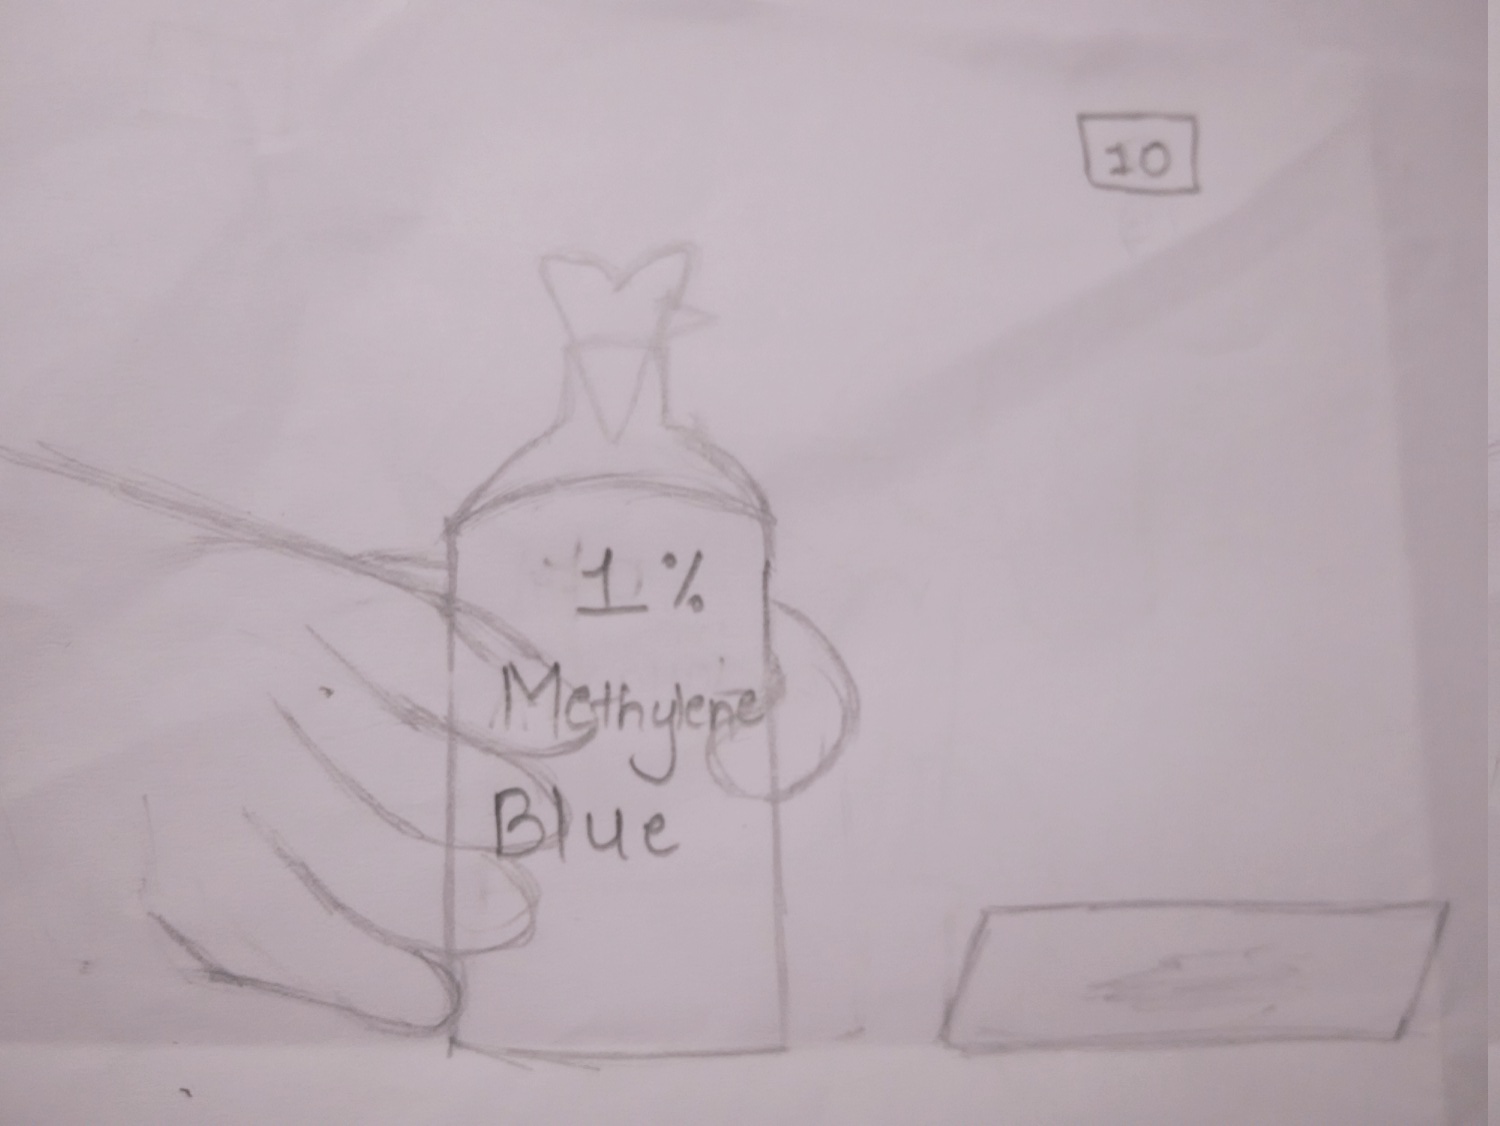 10
1%
Methylene
Blue